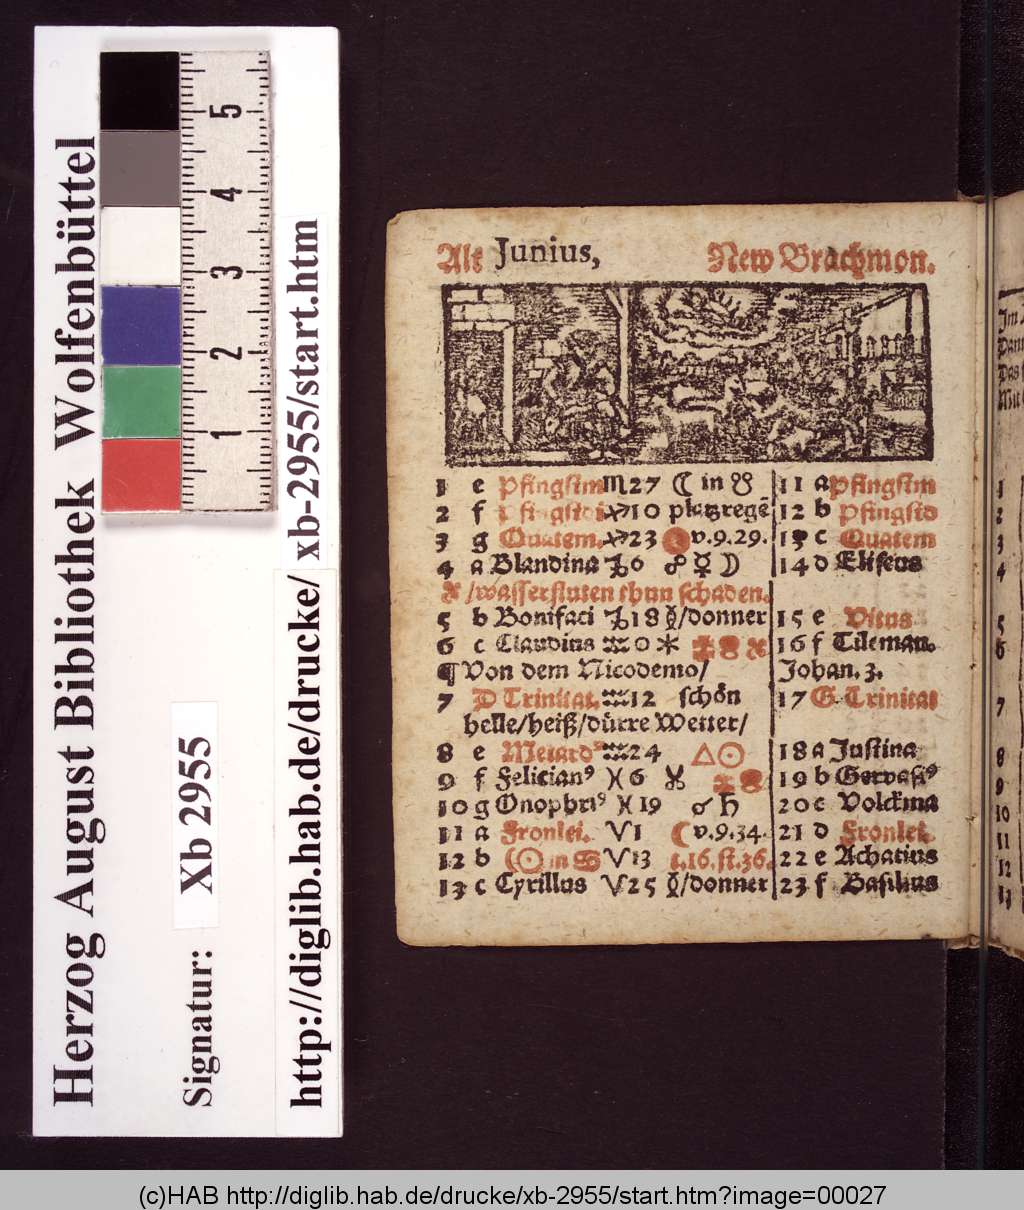 Herzog August Bibliothek Wolfenbüttel
Signatur: Xb 2955
http://diglib.hab.de/drucke/ xb-2955/start.htm
5
4
3
2
1
Alt Junius, New Brachmon.
1 e Pfingstm ♏ 27 ☾ in ☋ 11 a Pfingstm
2 f ♐ 10 platzregē 12 b Pfingstd
3 g Quatem. ♐ 23 v.9.29. 13 c Quatem
4 a Blandina ♑ 6 ☍ ☿ ☽ 14 d Eliseus
/wasserfluten thun schaden.
5 b Bonifaci ♑ 18 /donner 15 e Vitus
6 c Claudius ♒ 0 ⚹ 16 f Tileman.
¶ Von dem Nicodemo/ Johan. 3.
7 D Trinitat. ♒ 12 schön 17 G Trinitat
helle/heiß/dürre Wetter/
8 e Metard⁹ ♒ 24 △ ☉ 18 a Justina
9 f Felician⁹ ♓ 6 19 b Gervasi⁹
10 g Onophri⁹ ♓ 19 ☌ ♄ 20 c Volckma
11 a Fronlei. ♈ 1 ☾ v.9.34. 21 d Fronlei.
12 b ☉ in ♋ ♈ 13 1.16.st.36. 22 e Achatius
13 c Cyrillus ♈ 25 /donner 23 f Basilius
Im
Das
Mit
1
2
3
4
5
6
7
8
9
10
11
12
13
(c)HAB http://diglib.hab.de/drucke/xb-2955/start.htm?image=00027